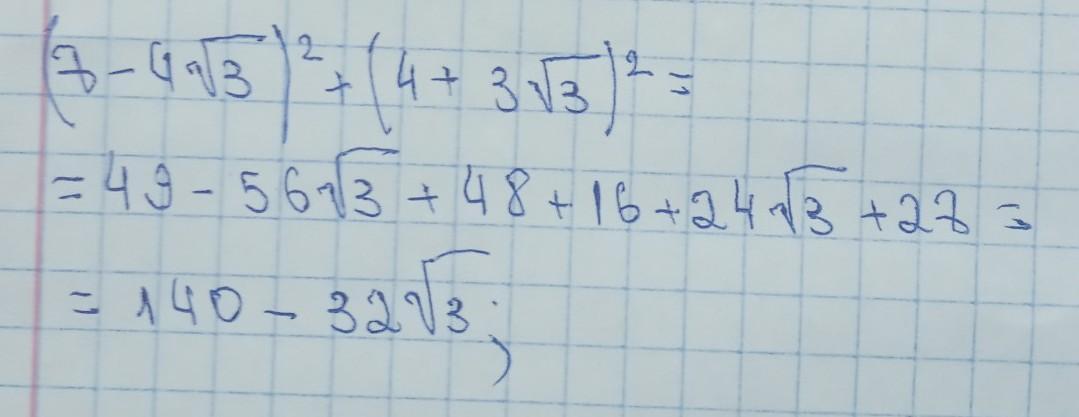 (7 - 4√3)² + (4 + 3√3)² =
= 49 - 56√3 + 48 + 16 + 24√3 + 27 =
= 140 - 32√3;